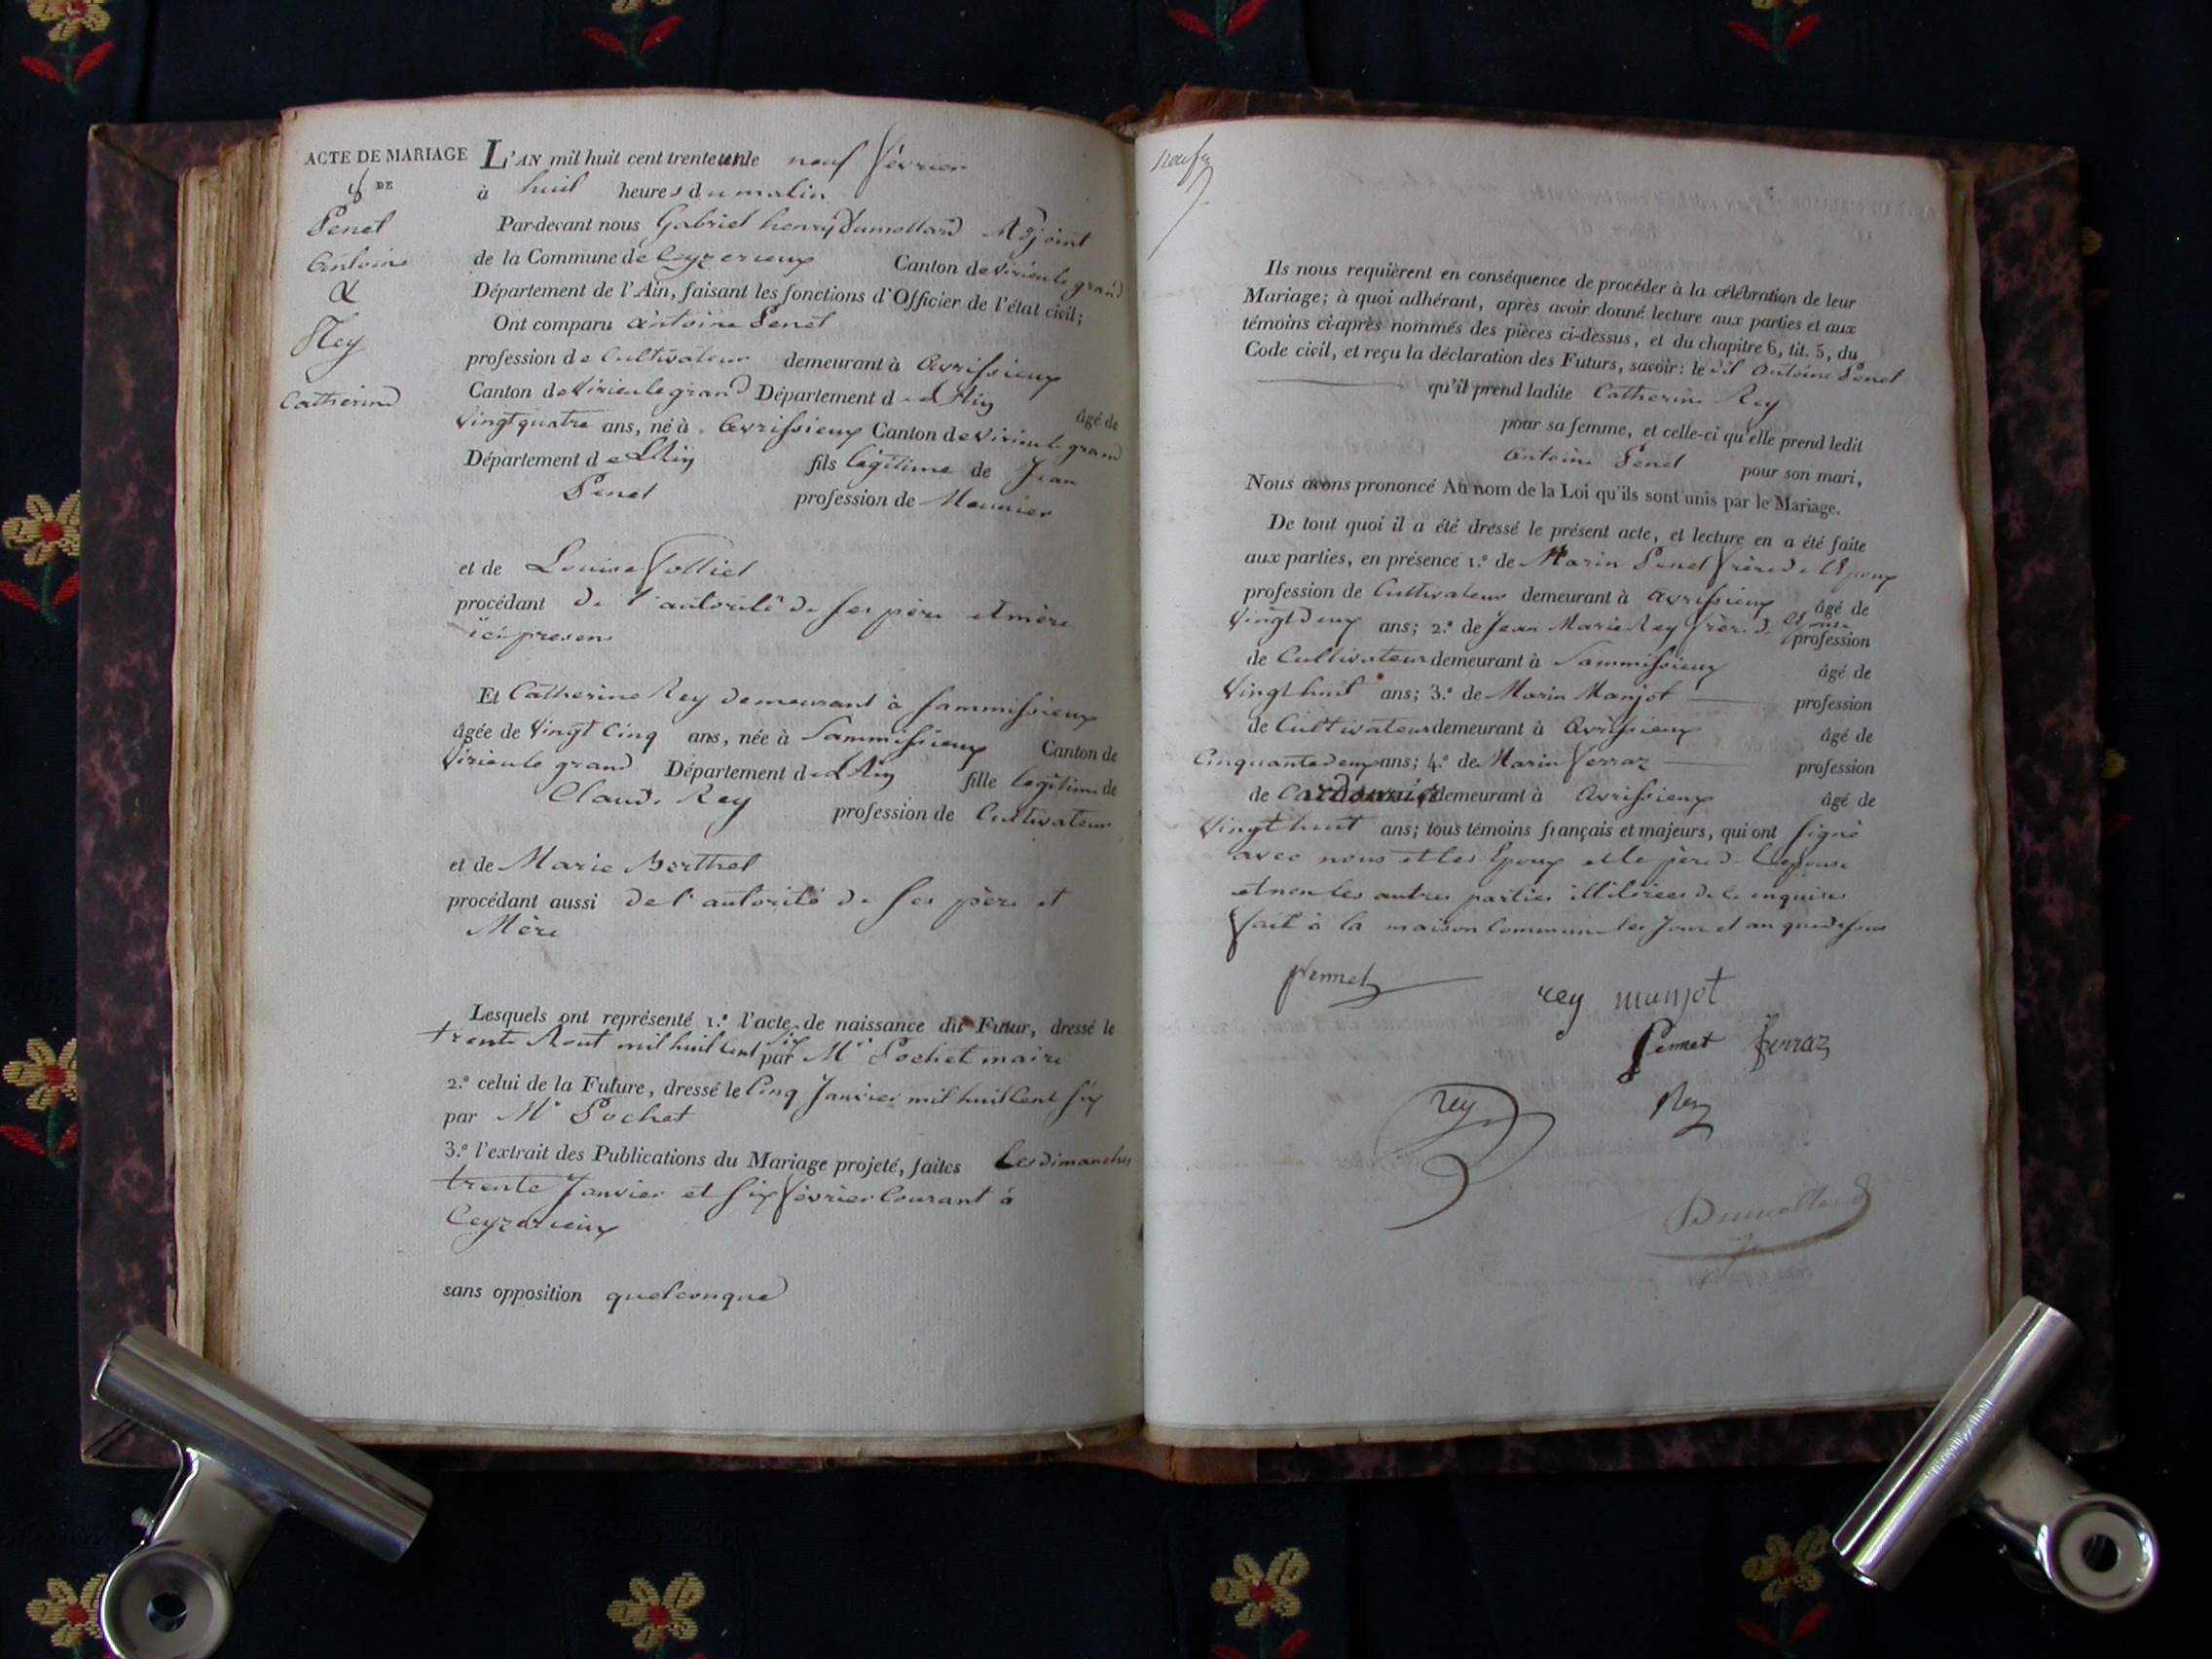 ACTE DE MARIAGE
DE
Penet
Antoine
&
Rey
Catherine
L'AN mil huit cent trente un le neuf février
à huit heures du matin
Par-devant nous Gabriel henry Dumollard Adjoint
de la Commune de Ceyzerieux Canton de Virieu le grand
Département de l'Ain, faisant les fonctions d'Officier de l'état civil;
Ont comparu Antoine Penet
profession de Cultivateur demeurant à Avrissieux
Canton de Virieu le grand Département de l'Ain âgé de
Vingt quatre ans, né à Avrissieux Canton de Virieu le grand
Département de L'Ain fils légitime de Jean
Penet profession de Meunier
et de Louise
procédant de l'autorité de ses père et mère
ici presens
Et Catherine Rey demeurant à Sammissieux
âgée de Vingt Cinq ans, née à Sammissieux Canton de
Virieu le grand Département de l'Ain fille légitime de
Claude Rey profession de Cultivateur
et de Marie Berthet
procédant aussi de l'autorité de ses père et
Mère
Lesquels ont représenté 1.º l'acte de naissance du Futur, dressé le
trente Aout mil huit Cent six par Mr Pochet maire
2.º celui de la Future, dressé le Cinq Janvier mil huit Cent six
par Mr Pochet
3.º l'extrait des Publications du Mariage projeté, faites les dimanches
trente Janvier et six février Courant à
Ceyzerieux
sans opposition quelconque
neuf
Ils nous requièrent en conséquence de procéder à la célébration de leur
Mariage; à quoi adhérant, après avoir donné lecture aux parties et aux
témoins ci-après nommés des pièces ci-dessus, et du chapitre 6, tit. 5, du
Code civil, et reçu la déclaration des Futurs, savoir: le dit Antoine Penet
qu'il prend ladite Catherine Rey
pour sa femme, et celle-ci qu'elle prend ledit
Antoine Penet pour son mari,
Nous avons prononcé Au nom de la Loi qu'ils sont unis par le Mariage.
De tout quoi il a été dressé le présent acte, et lecture en a été faite
aux parties, en présence 1.º de Marin Penet frère de l'Epoux
profession de Cultivateur demeurant à Avrissieux âgé de
Vingt Deux ans; 2.º de Jean Marie Rey frère de Epouse profession
de Cultivateur demeurant à Sammissieux âgé de
Vingt huit ans; 3.º de Marin Manjot profession
de Cultivateur demeurant à Avrissieux âgé de
Cinquante deux ans; 4.º de Marin ferraz profession
de demeurant à Avrissieux âgé de
Vingt huit ans; tous témoins français et majeurs, qui ont signé
avec nous et les Epoux et le père de l'Epouse
et non les autres parties illiterées de ce enquises
fait à la maison Commune les Jour et an que dessus
pennet
rey manjot
pennet ferraz
rey Rey
Dumollard